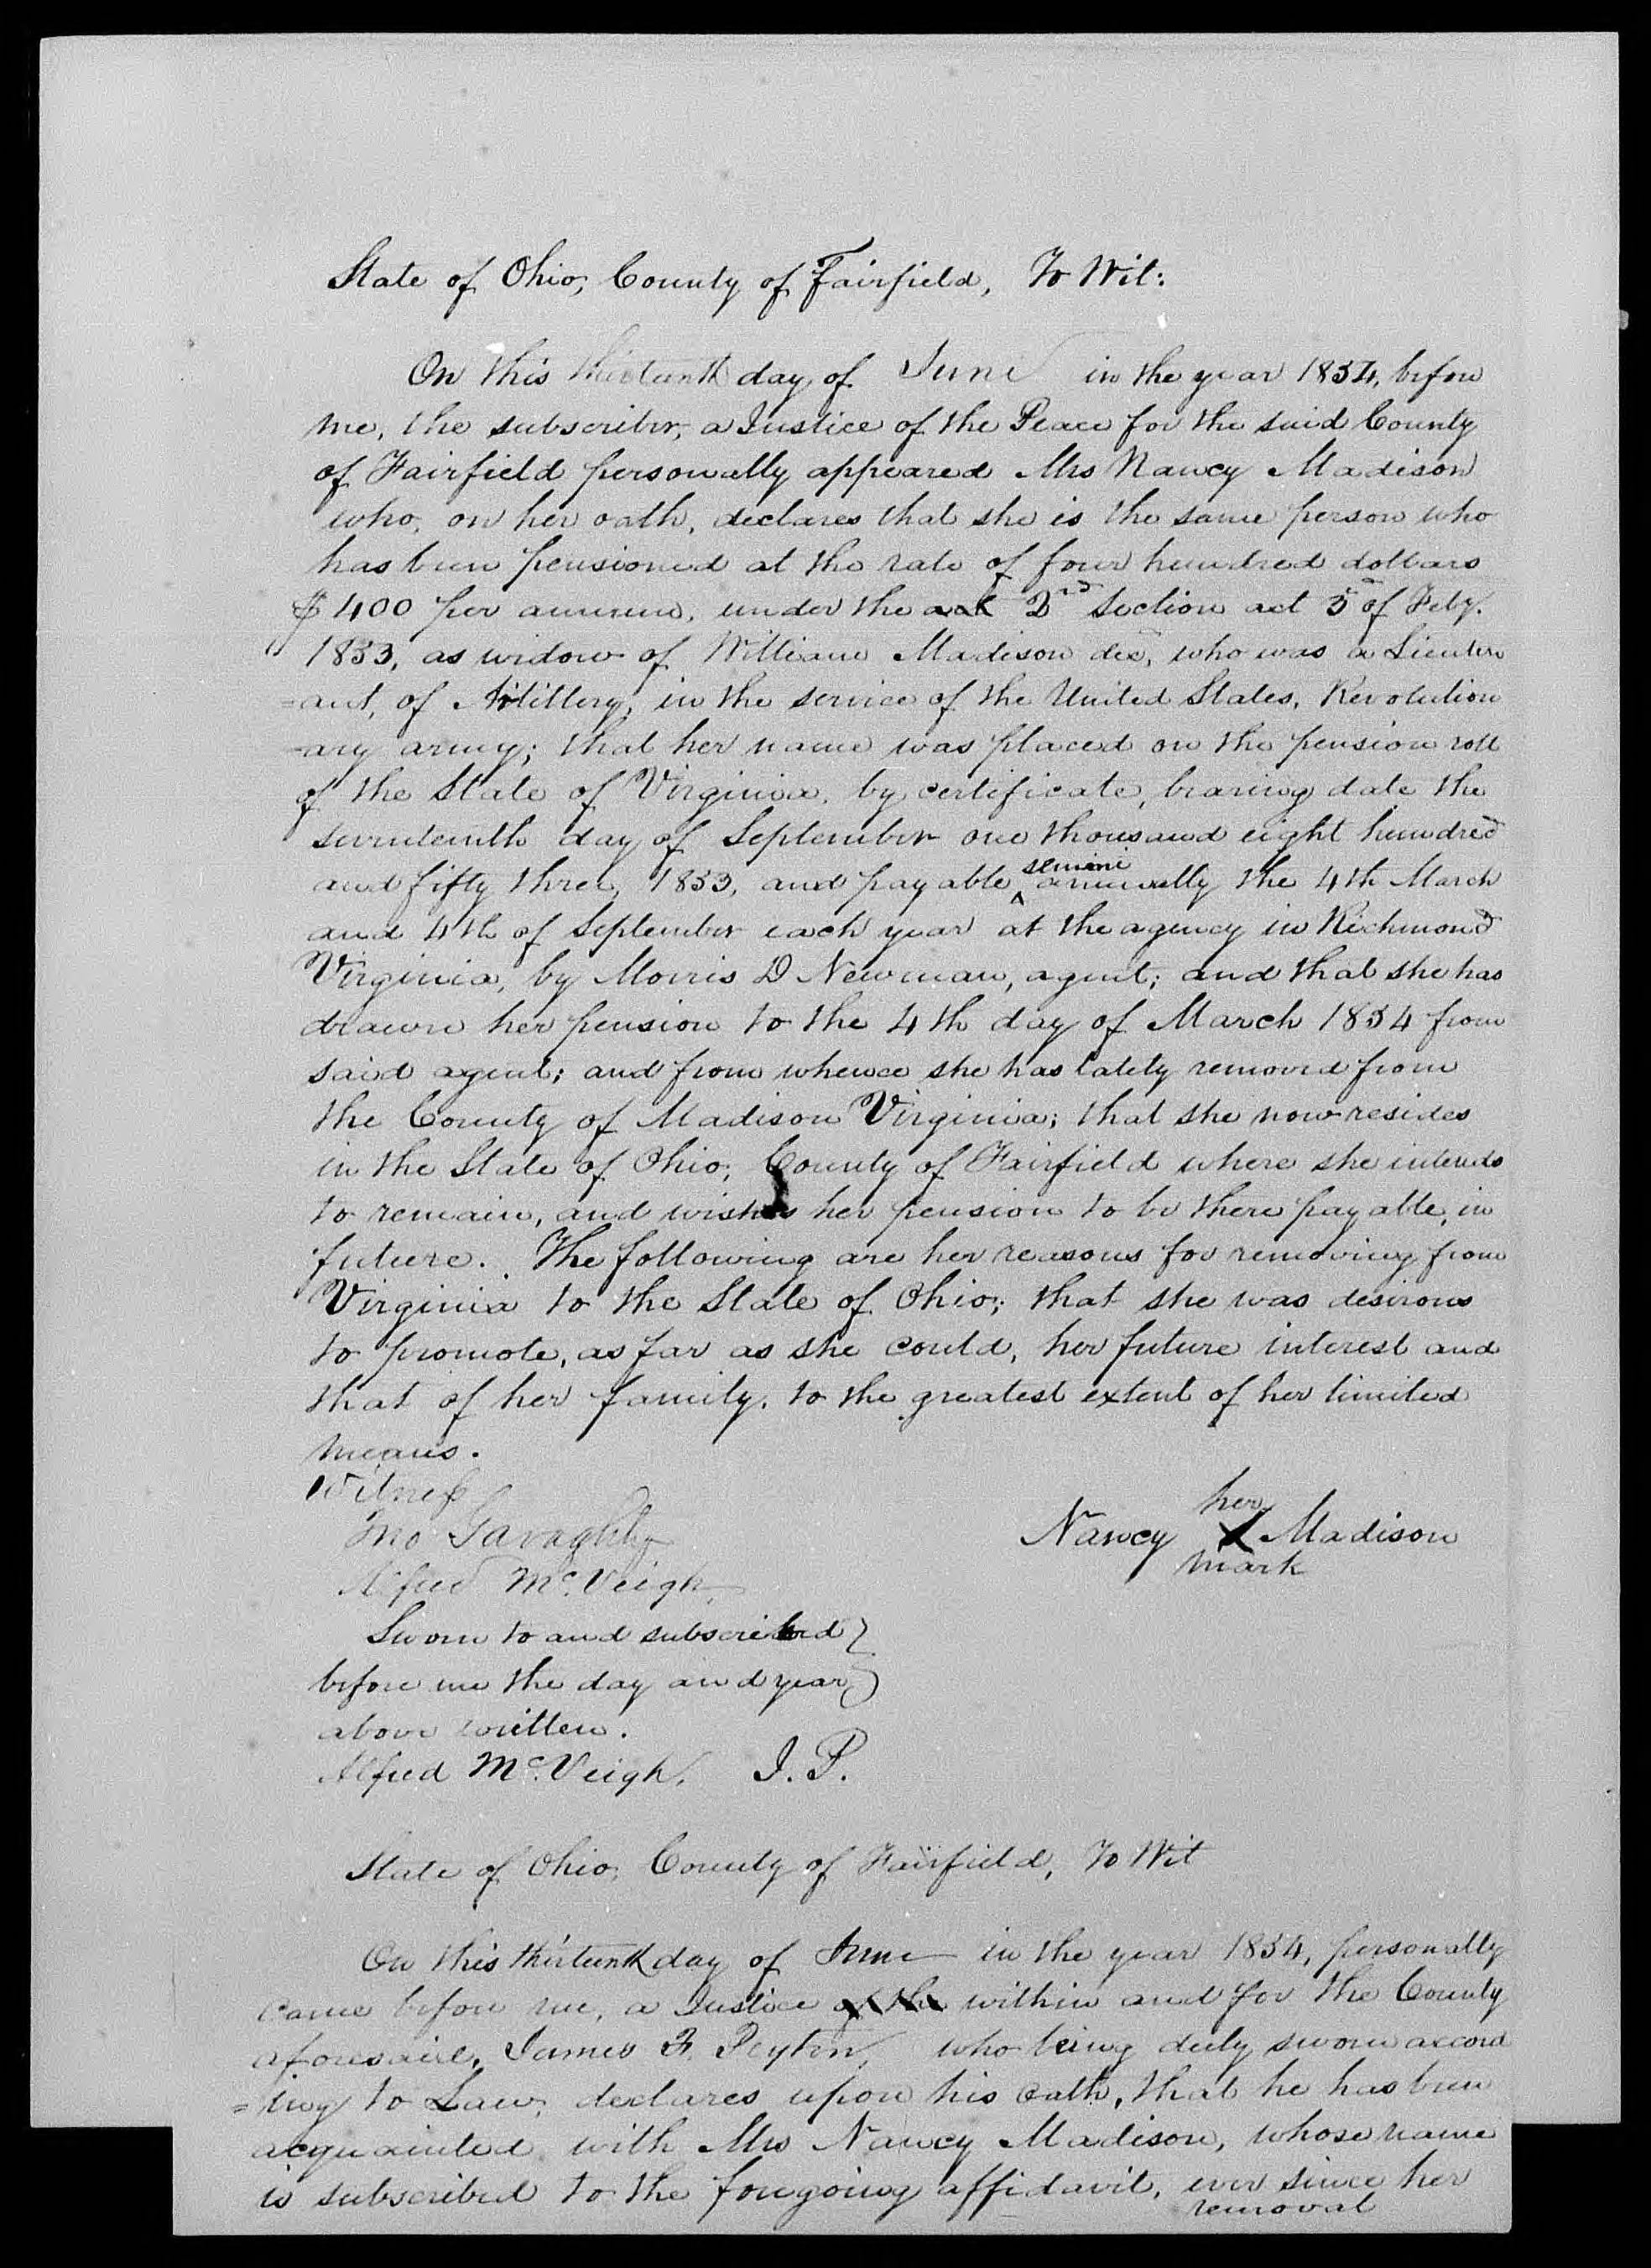 State of Ohio, County of Fairfield, To Wit:
On this thirteenth day of June in the year 1854, before
me, the subscriber, a Justice of the Peace for the said County
of Fairfield personally appeared Mrs Nancy Madison
who, on her oath, declares that she is the same person who
has been pensioned at the rate of four hundred dollars
$400 per annum, under the act 2nd Section act 3d of Feby.
1853, as widow of William Madison dec, who was a Lieuten
=ant, of Artillery, in the service of the United States, Revolution
-ary army; that her name was placed on the pension roll
of the State of Virginia, by certificate, bearing date the
seventeenth day of September one thousand eight hundred
and fifty three, 1853, and payable ^ semi annually the 4th March
and 4th of September each year at the agency in Richmond
Virginia, by Morris D Newman, agent; and that she has
drawn her pension to the 4th day of March 1854 from
said agent; and from whence she has lately removed from
the County of Madison Virginia; that she now resides
in the State of Ohio, County of Fairfield where she intends
to remain, and wishes her pension to be there payable, in
future. The following are her reasons for removing from
Virginia to the State of Ohio; that she was desirous
to promote, as far as she could, her future interest and
that of her family, to the greatest extent of her limited
means.
Witness
Jno Garaghty
Alfred McVeigh
her
Nancy X Madison
mark
Sworn to and subscribed }
before me the day and year }
above written.
Alfred McVeigh, J. P.
State of Ohio, County of Fairfield, To Wit
On this thirteenth day of June in the year 1854, personally
came before me, a Justice of the within and for the County
aforesaid, James F. Peyton, who being duly sworn accord
=ing to Law, declares upon his oath, that he has been
acquainted with Mrs Nancy Madison, whose name
is subscribed to the foregoing affidavit, ever since her
removal